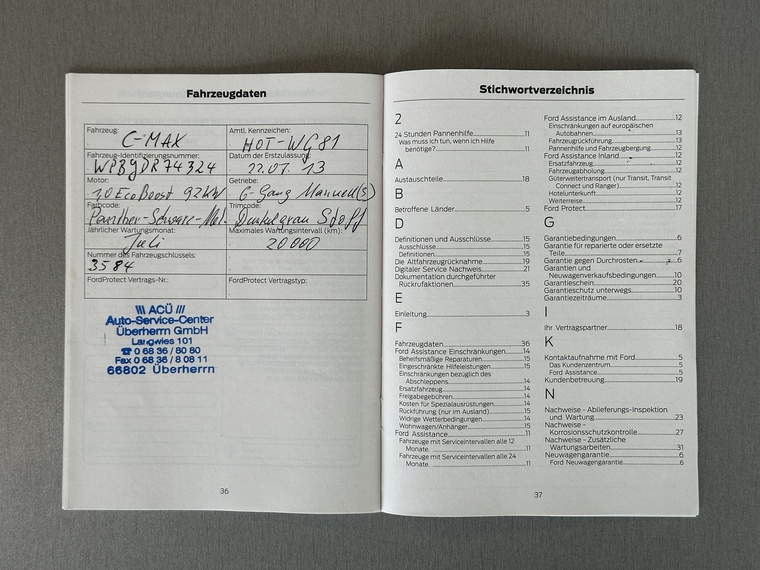 Fahrzeugdaten
Fahrzeug:
C-MAX
Amtl. Kennzeichen:
HOT-WG81
Fahrzeug-Identifizierungsnummer:
WPBGDR74324
Datum der Erstzulassung:
22.07.13
Motor:
1,0 EcoBoost 92kW
Getriebe:
6-Gang Manuell(S)
Farbcode:
Panther-Schwarz-Met.
Trimcode:
Dunkelgrau Stoff
Jährlicher Wartungsmonat:
Juli
Maximales Wartungsintervall (km):
20000
Nummer des Fahrzeugschlüssels:
3584
FordProtect Vertrags-Nr.:
FordProtect Vertragstyp:
\\\ ACÜ ///
Auto-Service-Center
Überherrn GmbH
Langwies 101
☎ 0 68 36 / 80 80
Fax 0 68 36 / 8 08 11
66802 Überherrn
36
Stichwortverzeichnis
2
24 Stunden Pannenhilfe 11
Was muss ich tun, wenn ich Hilfe
benötige? 11
A
Austauschteile 18
B
Betroffene Länder 5
D
Definitionen und Ausschlüsse 15
Ausschlüsse 15
Definitionen 15
Die Altfahrzeugrücknahme 19
Digitaler Service Nachweis 21
Dokumentation durchgeführter
Rückrufaktionen 35
E
Einleitung 3
F
Fahrzeugdaten 36
Ford Assistance Einschränkungen 14
Behelfsmäßige Reparaturen 15
Eingeschränkte Hilfeleistungen 15
Einschränkungen bezüglich des
Abschleppens 14
Ersatzfahrzeug 14
Freigabegebühren 14
Kosten für Spezialausrüstungen 14
Rückführung (nur im Ausland) 15
Widrige Wetterbedingungen 14
Wohnwagen/Anhänger 15
Ford Assistance 11
Fahrzeuge mit Serviceintervallen alle 12
Monate 11
Fahrzeuge mit Serviceintervallen alle 24
Monate 11
Ford Assistance im Ausland 12
Einschränkungen auf europäischen
Autobahnen 13
Fahrzeugrückführung 13
Pannenhilfe und Fahrzeugbergung 12
Ford Assistance Inland 12
Ersatzfahrzeug 12
Fahrzeugabholung 12
Güterweitertransport (nur Transit, Transit
Connect und Ranger) 12
Hotelunterkunft 12
Weiterreise 12
Ford Protect 17
G
Garantiebedingungen 6
Garantie für reparierte oder ersetzte
Teile 7
Garantie gegen Durchrosten 6
Garantien und
Neuwagenverkaufsbedingungen 10
Garantieschein 20
Garantieschutz unterwegs 10
Garantiezeiträume 3
I
Ihr Vertragspartner 18
K
Kontaktaufnahme mit Ford 5
Das Kundenzentrum 5
Ford Assistance 5
Kundenbetreuung 19
N
Nachweise - Ablieferungs-Inspektion
und Wartung 23
Nachweise -
Korrosionsschutzkontrolle 27
Nachweise - Zusätzliche
Wartungsarbeiten 31
Neuwagengarantie 6
Ford Neuwagengarantie 6
37